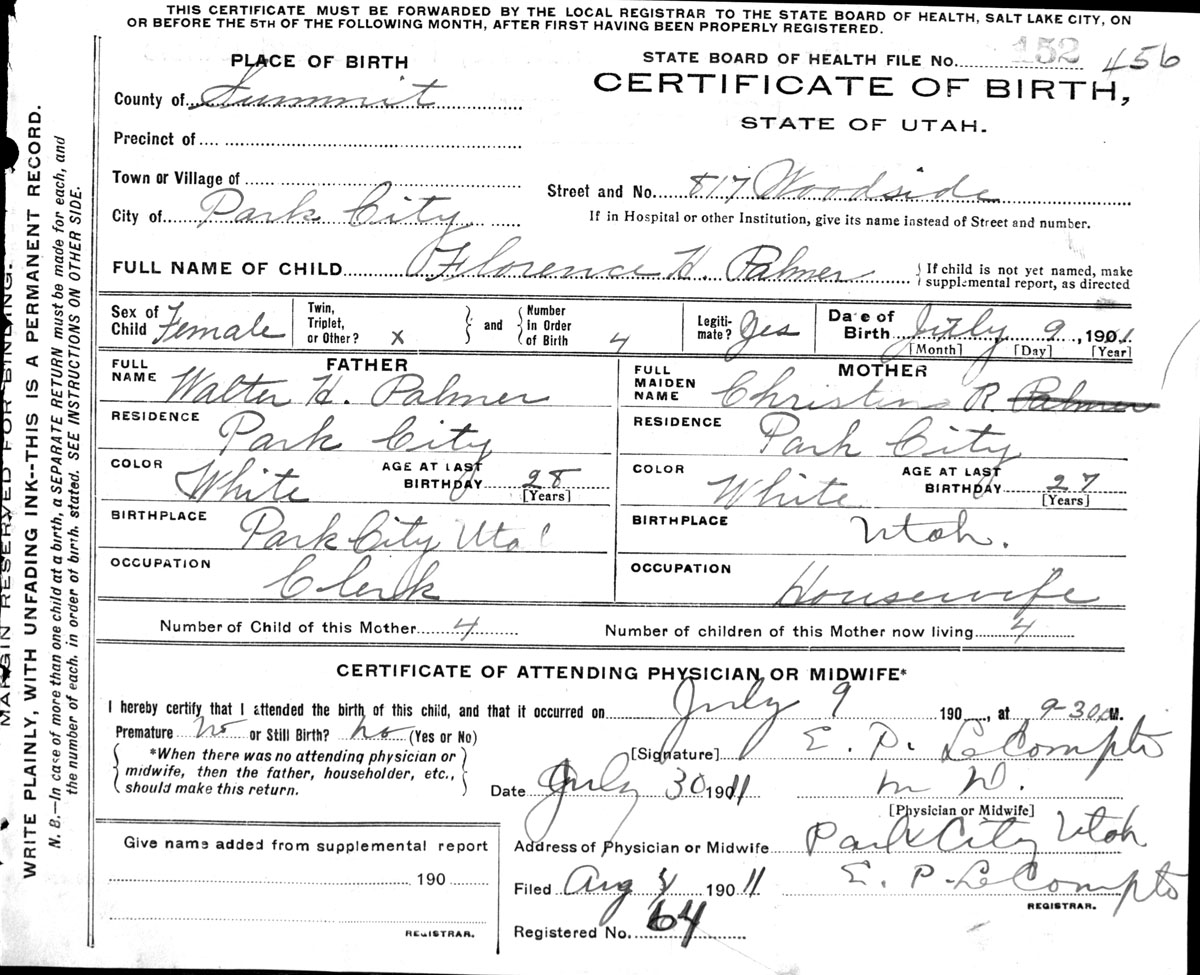 THIS CERTIFICATE MUST BE FORWARDED BY THE LOCAL REGISTRAR TO THE STATE BOARD OF HEALTH, SALT LAKE CITY, ON
OR BEFORE THE 5TH OF THE FOLLOWING MONTH, AFTER FIRST HAVING BEEN PROPERLY REGISTERED.
MARGIN RESERVED FOR BINDING.
WRITE PLAINLY, WITH UNFADING INK--THIS IS A PERMANENT RECORD.
N. B.—In case of more than one child at a birth, a SEPARATE RETURN must be made for each, and
the number of each, in order of birth, stated. SEE INSTRUCTIONS ON OTHER SIDE.
PLACE OF BIRTH
STATE BOARD OF HEALTH FILE No. 152 456
CERTIFICATE OF BIRTH,
STATE OF UTAH.
County of Summit
Precinct of
Town or Village of
Street and No. 817 Woodside
City of Park City
If in Hospital or other Institution, give its name instead of Street and number.
FULL NAME OF CHILD Florence H. Palmer { If child is not yet named, make
supplemental report, as directed
Sex of Child Female
Twin, Triplet, or Other? x } and { Number in Order of Birth 4
Legitimate? Yes
Date of Birth July 9, 1901
[Month] [Day] [Year]
FATHER
FULL NAME Walter H. Palmer
MOTHER
FULL MAIDEN NAME Christine R. Palmer
RESIDENCE Park City
RESIDENCE Park City
COLOR White AGE AT LAST BIRTHDAY 28 [Years]
COLOR White AGE AT LAST BIRTHDAY 27 [Years]
BIRTHPLACE Park City Utah
BIRTHPLACE Utah.
OCCUPATION Clerk
OCCUPATION Housewife
Number of Child of this Mother 4
Number of children of this Mother now living 4
CERTIFICATE OF ATTENDING PHYSICIAN OR MIDWIFE*
I hereby certify that I attended the birth of this child, and that it occurred on July 9 190 , at 9-30 M.
Premature No or Still Birth? No (Yes or No)
{ *When there was no attending physician or
midwife, then the father, householder, etc.,
should make this return. }
[Signature] E. P. LeCompte
Date July 30 1911 M D.
[Physician or Midwife]
Give name added from supplemental report
190
REGISTRAR.
Address of Physician or Midwife Park City Utah
Filed Aug 4 1911 E. P. LeCompte
REGISTRAR.
Registered No. 64